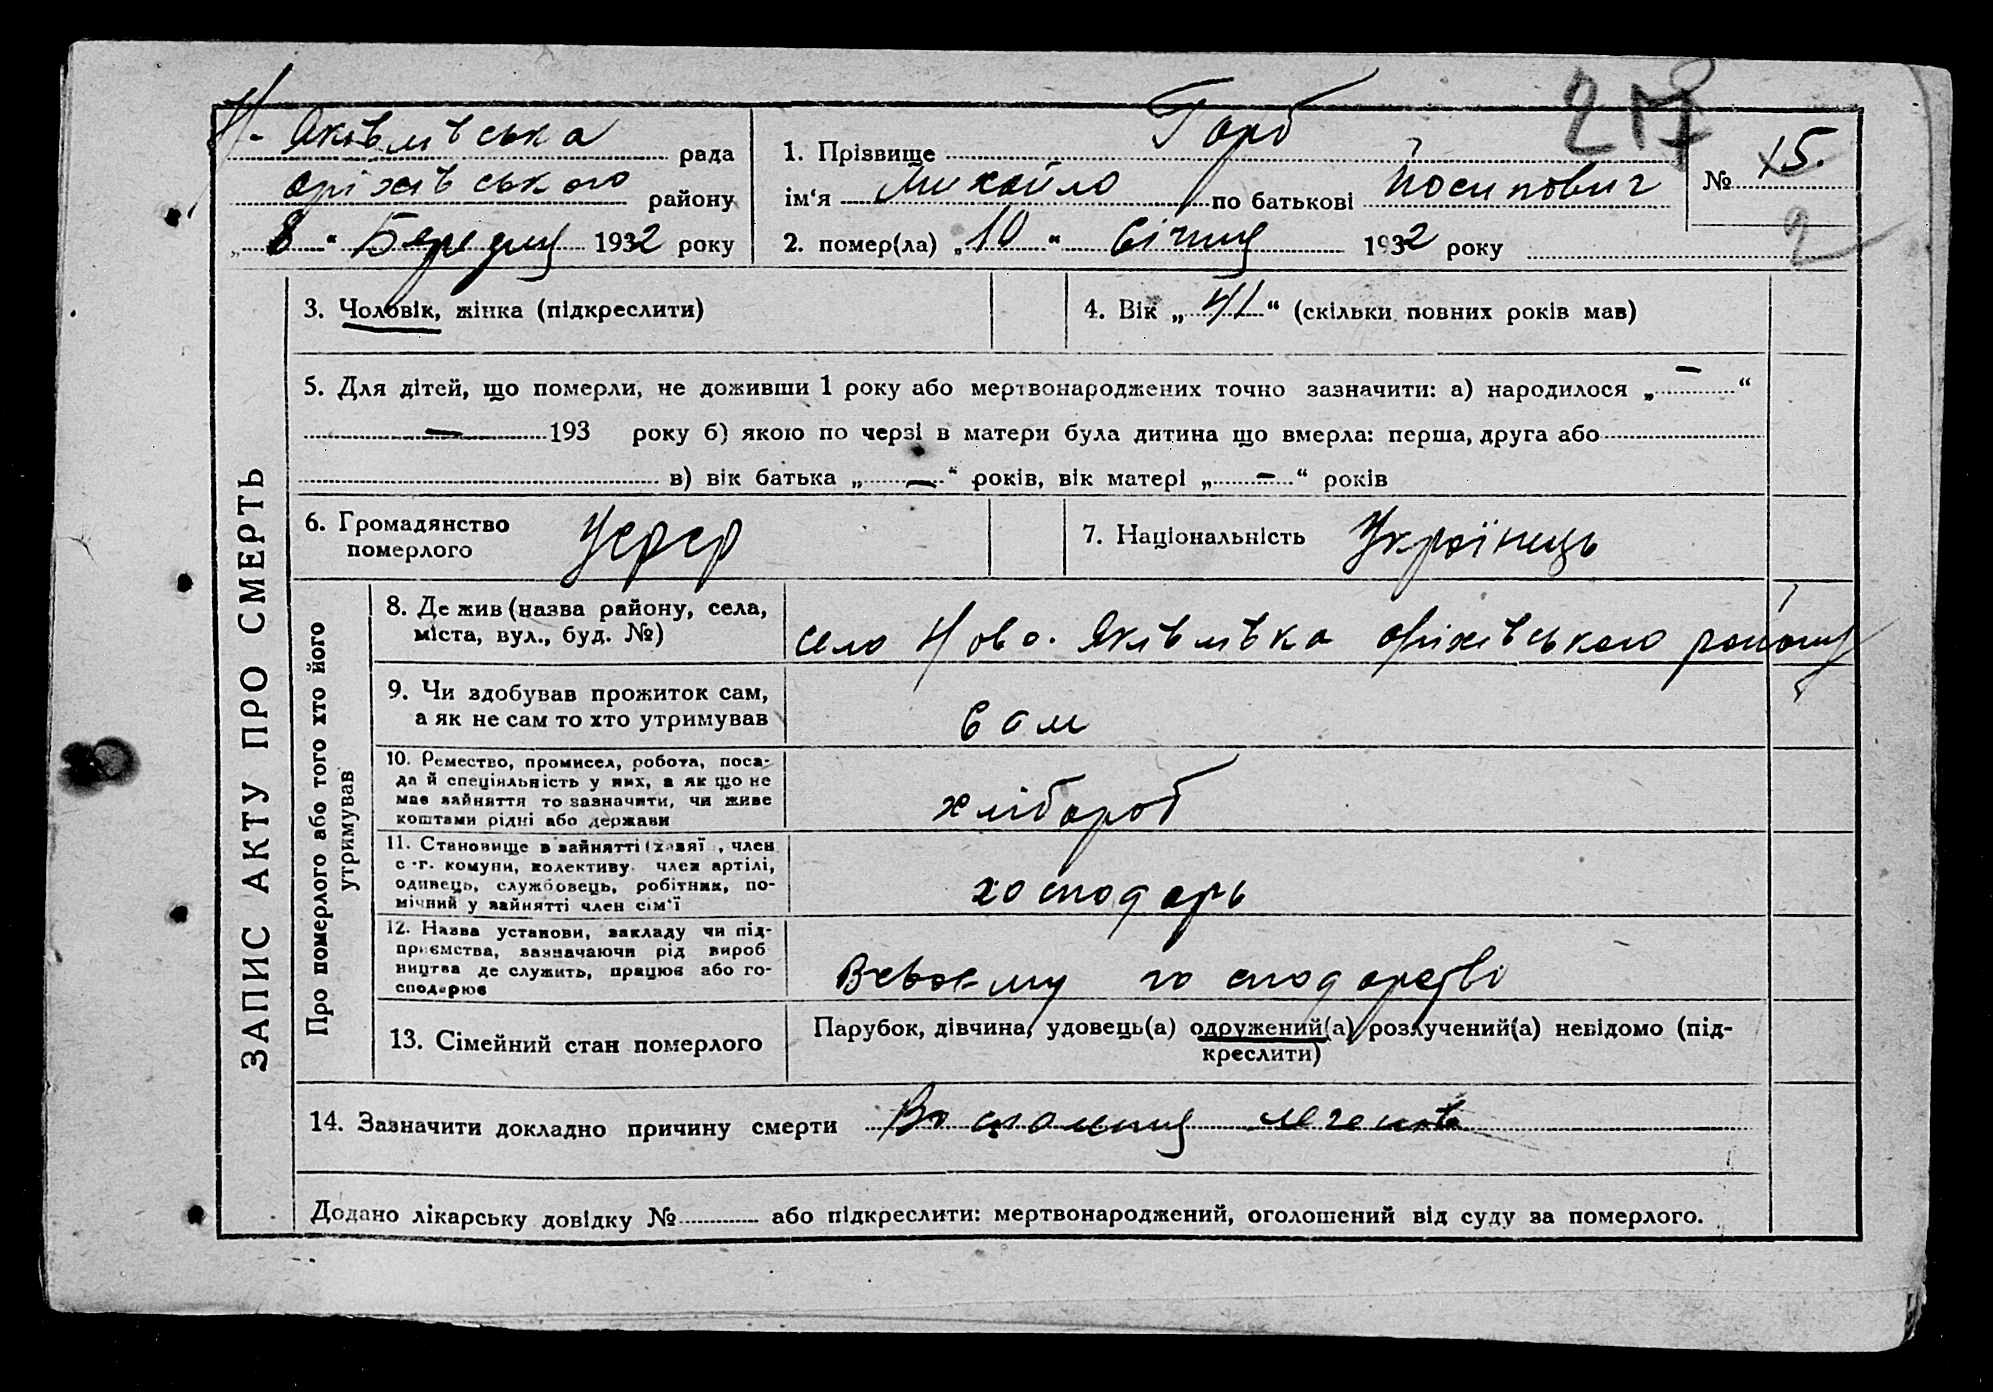 217
Н-Яковлівська рада
оріхівського району
„8“ Березня 1932 року
1. Прізвище Горб
ім'я Михайло по батькові Йосипович
2. помер(ла) „10“ Січня 1932 року
№ 15.
2
3. Чоловік, жінка (підкреслити)
4. Вік „41“ (скільки повних років мав)
5. Для дітей, що померли, не доживши 1 року або мертвонароджених точно зазначити: а) народилося „—“
— 193 року б) якою по черзі в матери була дитина що вмерла: перша, друга або
в) вік батька „—“ років, вік матері „—“ років
6. Громадянство
померлого
Усрср
7. Національність Українець
ЗАПИС АКТУ ПРО СМЕРТЬ
Про померлого або того хто його
утримував
8. Де жив (назва району, села,
міста, вул., буд. №)
село Ново-Яківлівка оріхівського району
9. Чи здобував прожиток сам,
а як не сам то хто утримував
Сам
10. Ремество, промисел, робота, поса-
да й спеціяльність у них, а як що не
має зайняття то зазначити, чи живе
коштами рідні або держави
хлібороб
11. Становище в зайнятті (хазяї, член
с.-г. комуни, колективу, член артілі,
одинець, службовець, робітник, по-
мічний у зайнятті член сім'ї
господарь
12. Назва установи, закладу чи під-
приємства, зазначаючи рід вироб
ництва де служить, працює або го-
сподарює
Всвоєму господарстві
13. Сімейний стан померлого
Парубок, дівчина, удовець(а) одружений(а) розлучений(а) невідомо (під-
креслити)
14. Зазначити докладно причину смерти легенів
Додано лікарську довідку № або підкреслити: мертвонароджений, оголошений від суду за померлого.